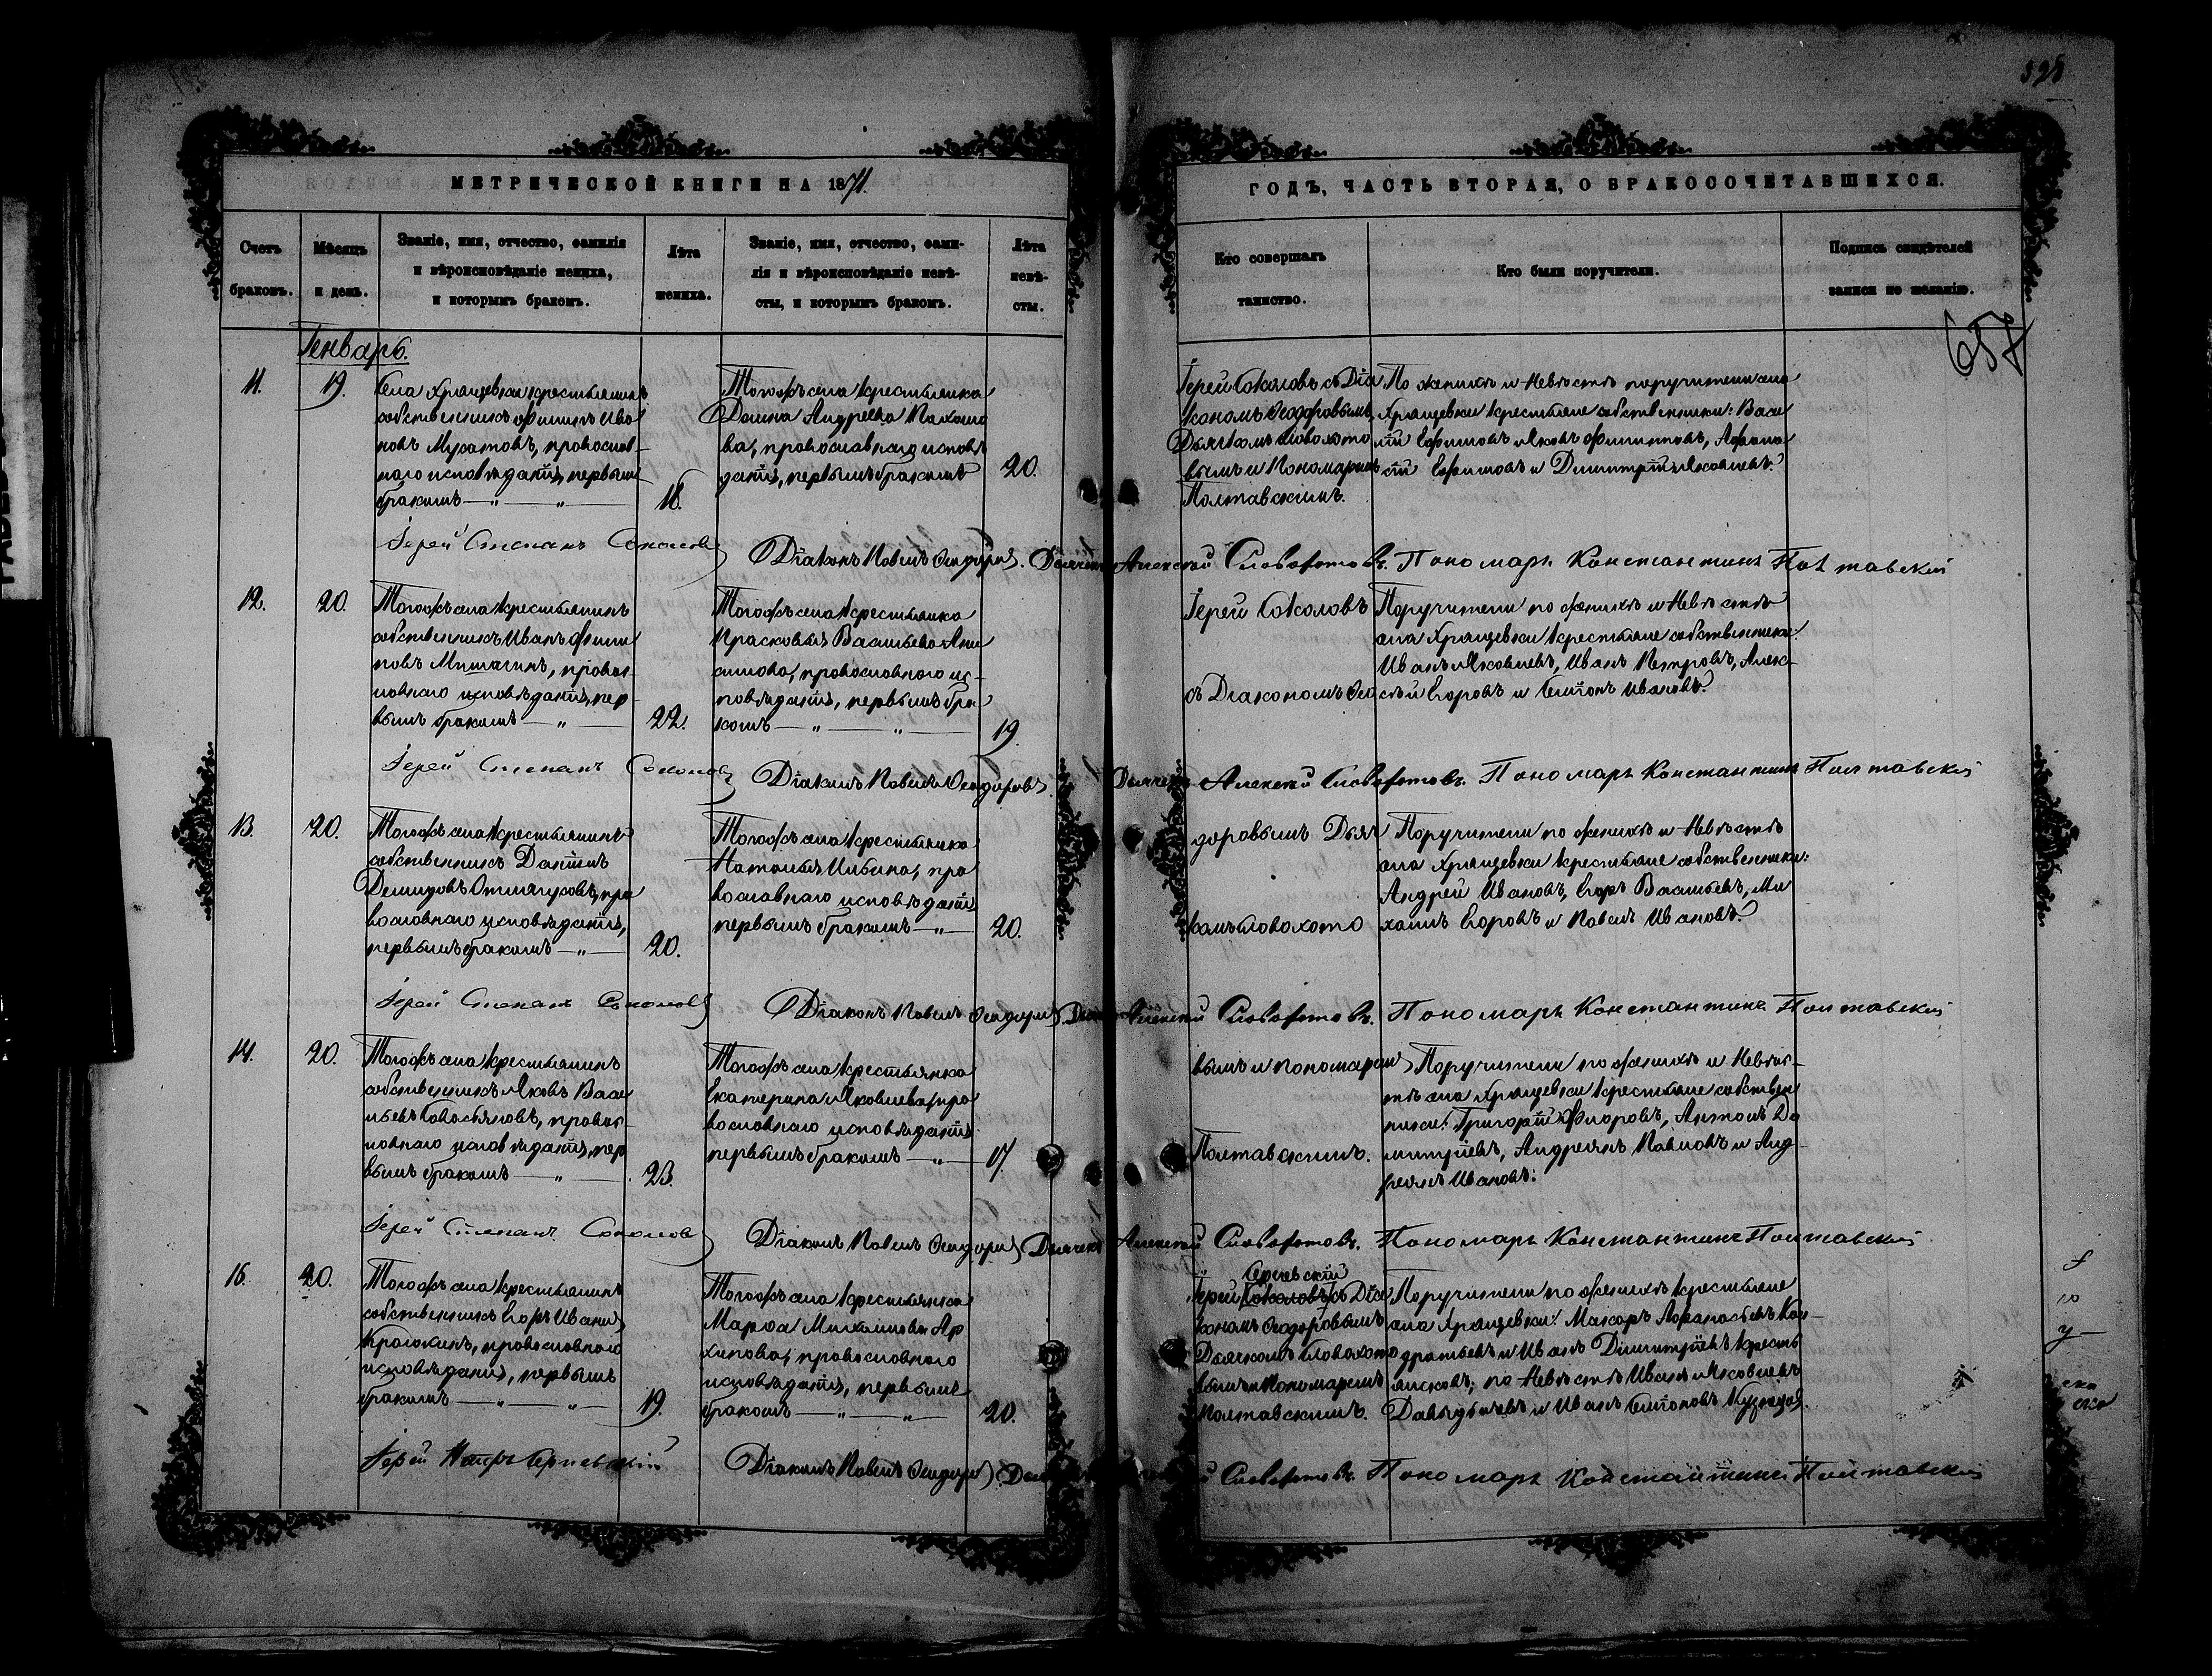 328
МЕТРИЧЕСКОЙ КНИГИ НА 1871.
ГОДЪ, ЧАСТЬ ВТОРАЯ, О БРАКОСОЧЕТАВШИХСЯ.
Счетъ браковъ.
Мѣсяцъ и день.
Званіе, имя, отчество, фамилія
и вѣроисповѣданіе жениха,
и которымъ бракомъ.
Лѣта
жениха.
Званіе, имя, отчество, фами-
лія и вѣроисповѣданіе невѣ-
сты, и которымъ бракомъ.
Лѣта
невѣ-
сты.
Кто совершалъ
таинство.
Кто были поручители.
Подпись свидѣтелей
записи по желанію.
657
Генварь.
11.
19.
Села Хрящевки крестьянинъ
собственникъ Филипъ Ива
новъ Муратовъ, православ-
наго исповѣданія, первымъ
бракомъ — „ — „ —
18.
Тогожъ села крестьянка
Домна Андреева Пахомо
ва, православнаго исповѣ
данія, первымъ бракомъ
20.
Іерей Соколовъ съ Діа
кономъ Ѳеодоровымъ,
Дьячкомъ Словохото
вымъ и Пономаремъ
Полтавскимъ.
По женихѣ и Невѣстѣ поручители села
Хрящевки крестьяне собственники: Васи
лій Ефимовъ, Яковъ Филиповъ, Афана
сій Ефимовъ и Димитрій Яковлевъ.
Іерей Степанъ Соколовъ
Діаконъ Павелъ Ѳеодоровъ. Дьячекъ Алексѣй Словохотовъ. Пономарь Константинъ Полтавский
12.
20.
Тогожъ села крестьянинъ
собственникъ Иванъ Фили
повъ Мишагинъ, правос-
лавнаго исповѣданія, пер
вымъ бракомъ — „ —
22.
Тогожъ села крестьянка
Прасковья Васильева Ани
симова, православнаго ис-
повѣданія, первымъ бра
комъ — „ — „ —
19.
Іерей Соколовъ
съ Діакономъ Ѳео
Поручители по женихѣ и Невѣстѣ
села Хрящевки крестьяне собственники:
Иванъ Яковлевъ, Иванъ Петровъ, Алек-
сѣй Егоровъ и Семіонъ Ивановъ.
Іерей Степанъ Соколовъ
Діаконъ Павелъ Ѳеодоровъ. Дьячекъ Алексѣй Словохотовъ. Пономарь Константинъ Полтавский
13.
20.
Тогожъ села крестьянинъ
собственникъ Даніилъ
Демидовъ, пра
вославнаго исповѣданія,
первымъ бракомъ — „ —
20.
Тогожъ села крестьянка
Наталья Ильина, пра
вославнаго исповѣданія
первымъ бракомъ — „ —
20.
доровымъ Дьяч
комъ Словохото
Поручители по женихѣ и Невѣстѣ
села Хрящевки крестьяне собственники:
Андрей Ивановъ, Егоръ Васильевъ, Ми
хаилъ Егоровъ и Павелъ Ивановъ.
Іерей Степанъ Соколовъ
Діаконъ Павелъ Ѳеодоровъ. Дьячекъ Алексѣй Словохотовъ. Пономарь Константинъ Полтавский
14.
20.
Тогожъ села крестьянинъ
собственникъ Яковъ Васи
льевъ, правос-
лавнаго исповѣданія, пер
вымъ бракомъ — „ —
23.
Тогожъ села крестьянка
Екатерина Яковлева, пра
вославнаго исповѣданія
первымъ бракомъ — „ —
17.
вымъ и пономаремъ
Полтавскимъ.
Поручители по женихѣ и Невѣс-
тѣ села Хрящевки крестьяне собствен
ники: Григорій Флоровъ, Антонъ Ди
митріевъ, Андреянъ Павловъ и Анд-
реянъ Ивановъ.
Іерей Степанъ Соколовъ
Діаконъ Павелъ Ѳеодоровъ Дьячекъ Алексѣй Словохотовъ. Пономарь Константинъ Полтавский
15.
20.
Тогожъ села крестьянинъ
собственникъ Егоръ Ивановъ
православнаго
исповѣданія, первымъ
бракомъ — „ — „ —
19.
Тогожъ села крестьянка
Марѳа Михаилова Ар
хипова, православнаго
исповѣданія, первымъ
бракомъ — „ — „ —
20.
Іерей Соколовъ съ Діа
кономъ Ѳеодоровымъ
Дьячкомъ Словохото
вымъ и Пономаремъ
Полтавскимъ.
Поручители по женихѣ крестьяне
села Хрящевки: Макаръ Афанасьевъ Кон-
дратьевъ и Иванъ Димитріевъ Кресть
янсковъ; по Невѣстѣ Иванъ Яковлевъ
Давыдычевъ и Иванъ Семіоновъ Кузнецовъ.
Іерей Петръ
Діаконъ Павелъ Ѳеодоровъ. Словохотовъ. Пономарь Константинъ Полтавский